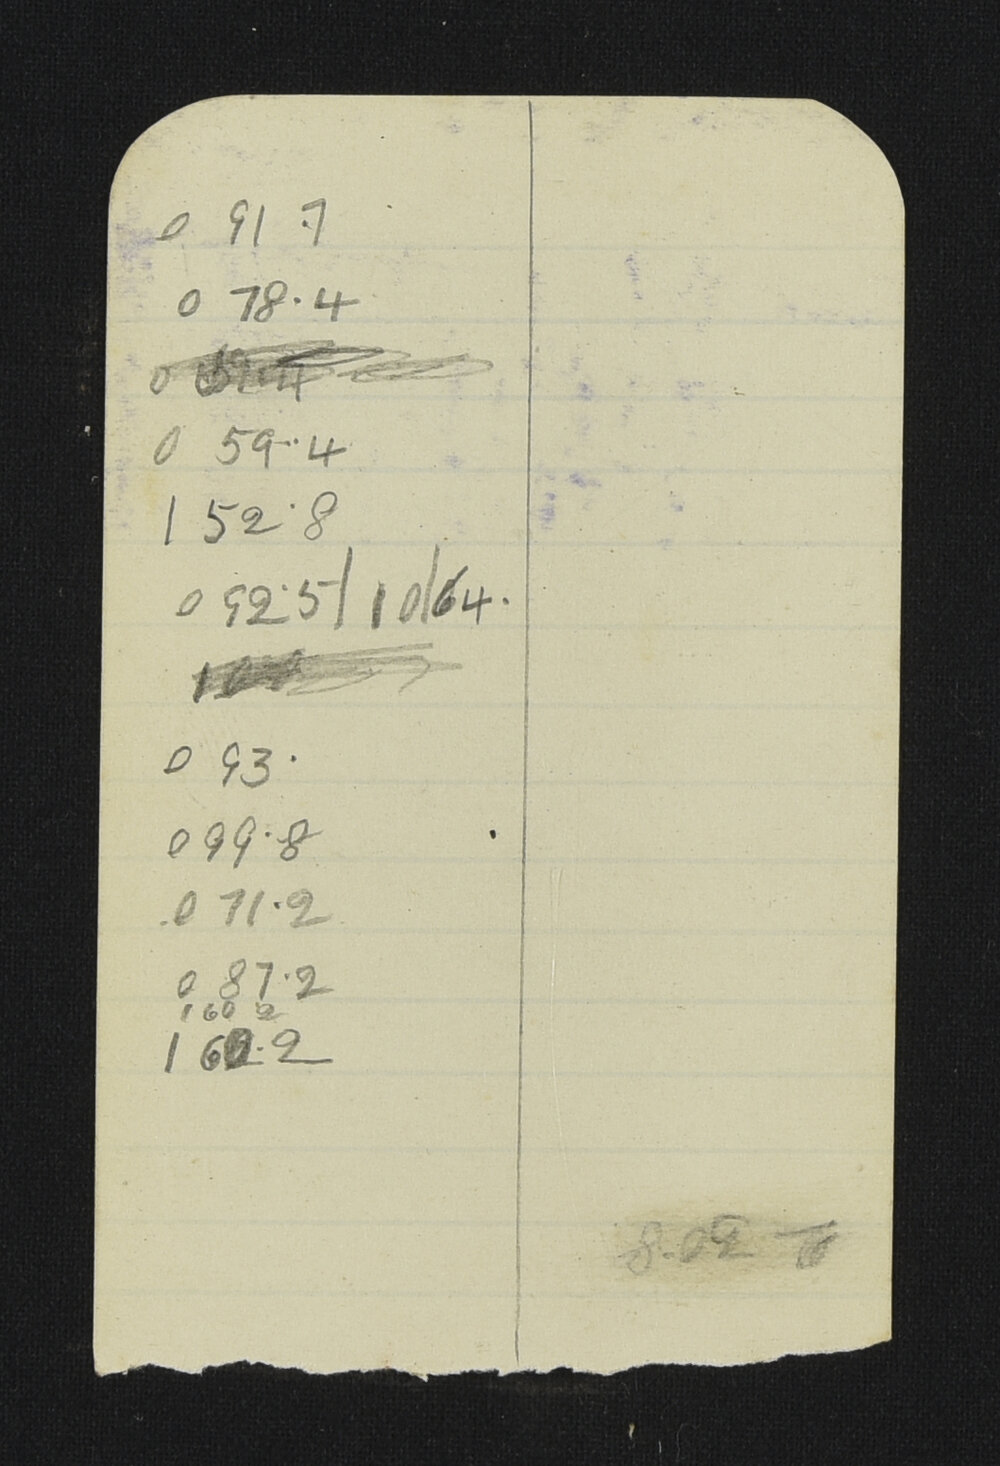 0 91.7
0 78.4
0 59.4
1 52.8
0 92.5 | 10 | 64.
0 93.
0 99.8
0 71.2
0 87.2
1 60 2
1 60.2